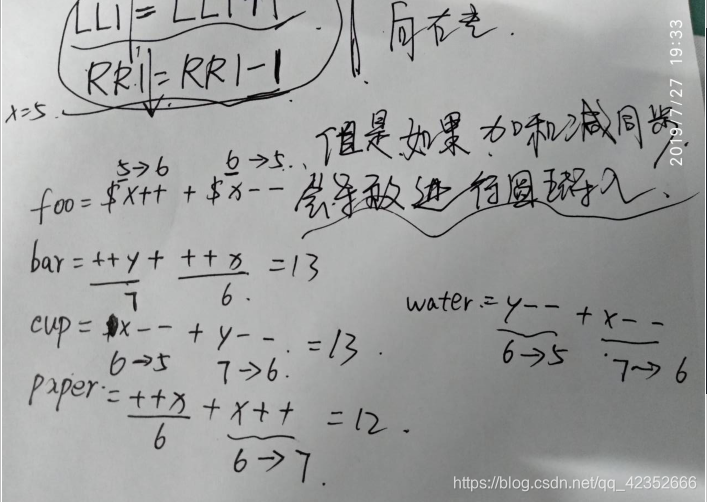 LL1 = LL1+1
向右走.
RR1 = RR1-1
x=5.
但是如果 加和减同步
5→6 6→5.
foo = $x++ + $x--
会导致进行
bar = ++y + ++x = 13
7 6.
water = y-- + x--
6→5 7→6
cup = x-- + y-- = 13.
6→5 7→6.
paper = ++x + x++ = 12.
6 6→7.
2019/7/27 19:33
https://blog.csdn.net/qq_42352666